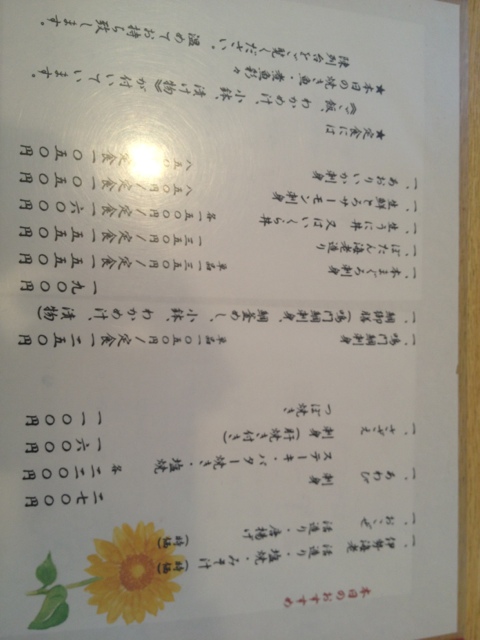 本日のおすすめ
一、伊勢海老 活造り・塩焼・みそ汁 (時価)
一、おこぜ 活造り・唐揚げ (時価)
一、あわび 刺身 二七〇〇円
ステーキ・バター焼き・塩焼 各二二〇〇円
一、さざえ 刺身(肝焼き付き) 一六〇〇円
つぼ焼き 一一〇〇円
一、鳴門鯛刺身 単品 円/定食一二五〇円
一、鯛御膳(鳴門鯛刺身、鯛釜めし、小鉢、わかめ汁、漬物)
一九〇〇円
一、本まぐろ刺身 単品一三五〇円/定食一五五〇円
一、ぼたん海老造り 一三五〇円/定食一五五〇円
一、生うに丼 又はいくら丼 各一五〇〇円/定食一六〇〇円
一、生鮮とろサーモン刺身 八五〇円/定食一〇五〇円
一、あおりいか刺身 八五〇 定食一〇五〇円
★定食には
ご飯、わかめ汁、小鉢、漬物が付いています。
★本日の焼き魚・煮魚彩々
陳列台をご覧ください。温めてお持ち致します。